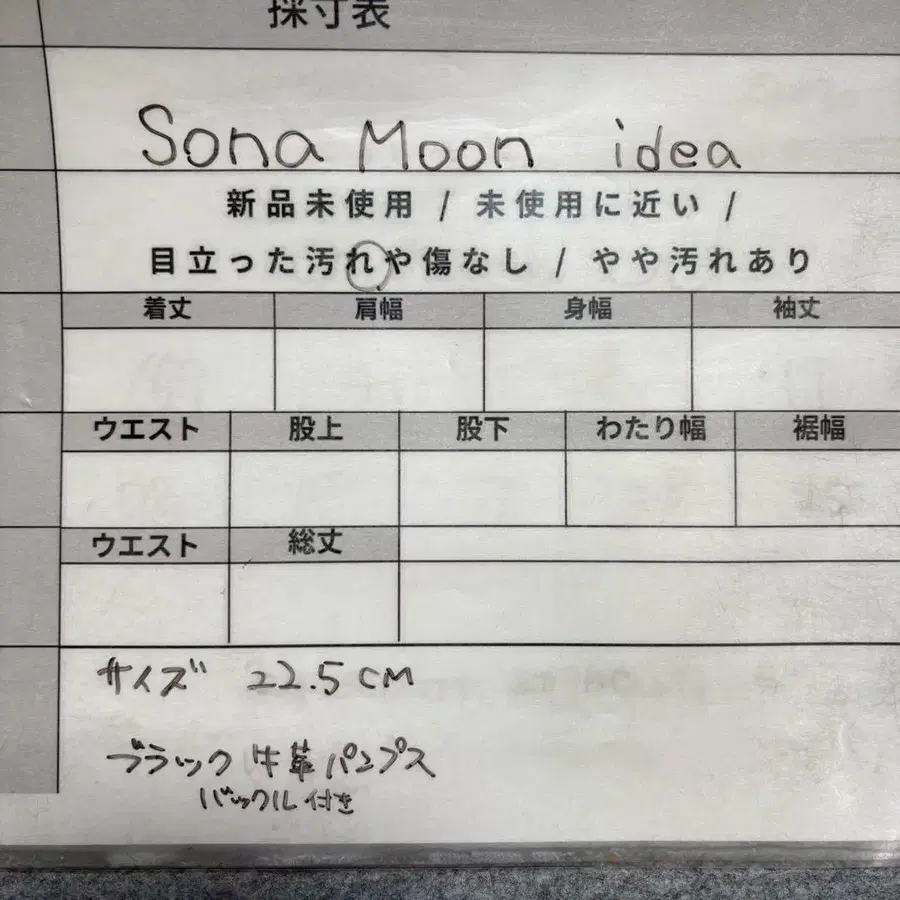 採寸表
Sona Moon idea
新品未使用 / 未使用に近い /
目立った汚れや傷なし / やや汚れあり
着丈 肩幅 身幅 袖丈
ウエスト 股上 股下 わたり幅 裾幅
ウエスト 総丈
サイズ 22.5CM
ブラック 牛革パンプス
バックル付き